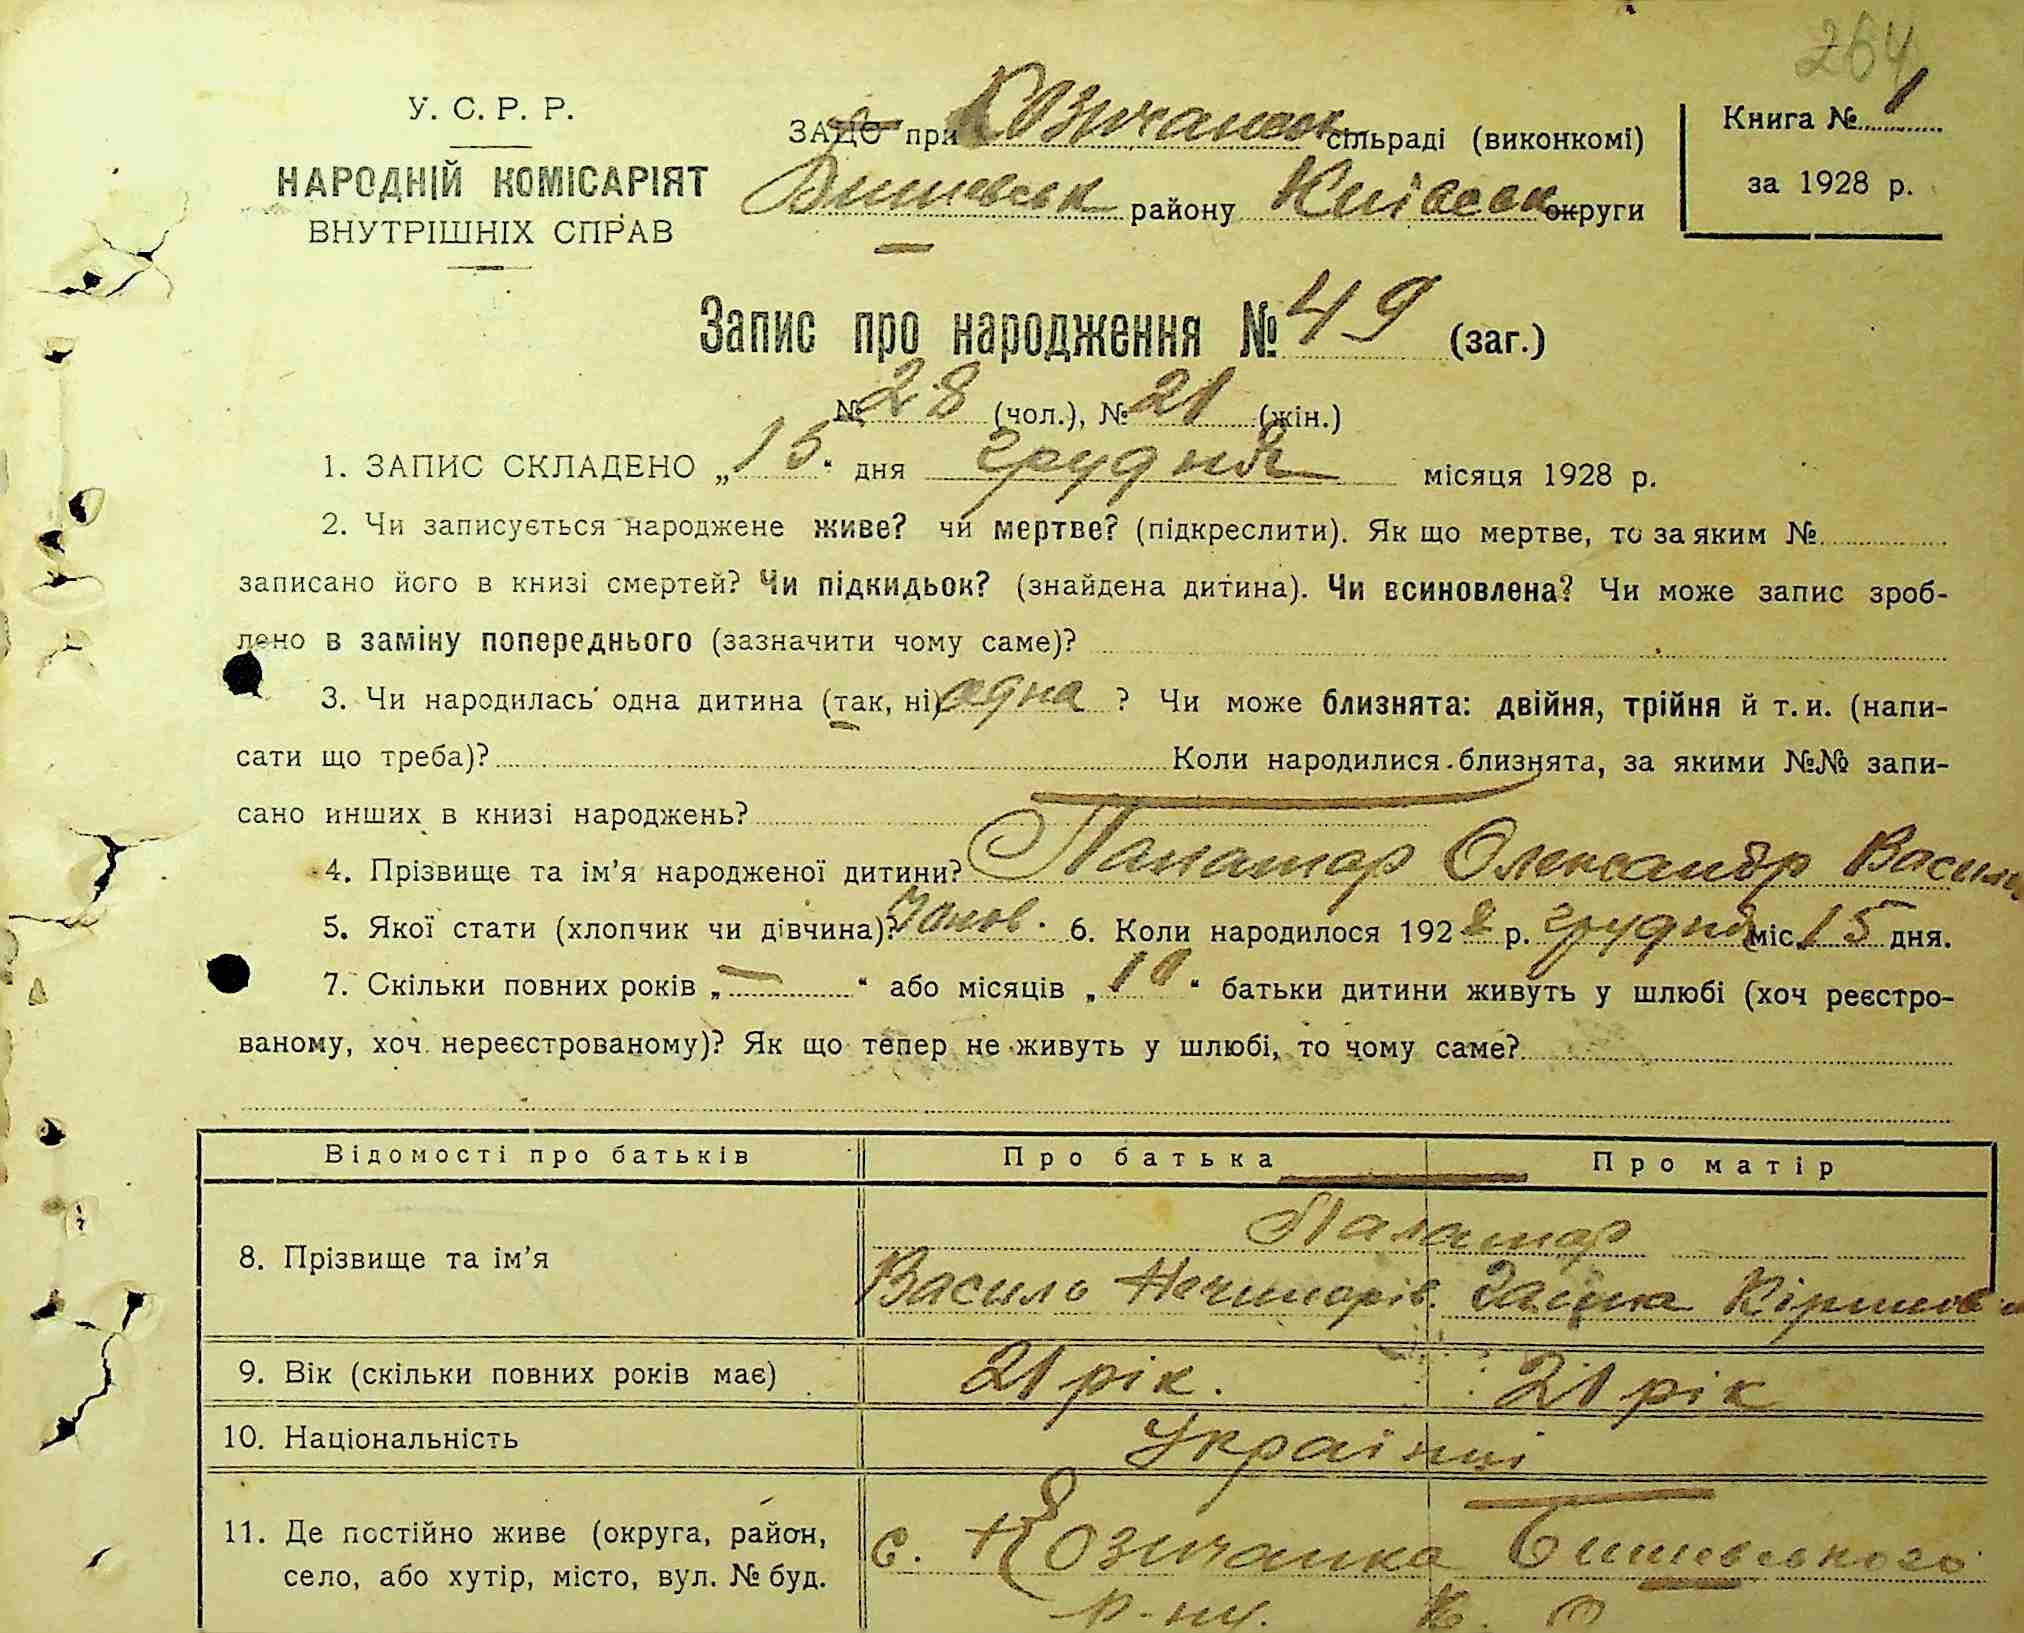 264
У. С. Р. Р.
НАРОДНІЙ КОМІСАРІЯТ
ВНУТРІШНІХ СПРАВ
ЗАЦС при Козичанск сільраді (виконкомі)
Бишевськ району Київськ округи
Книга № 1
за 1928 р.
Запис про народження № 49 (заг.)
№ 28 (чол.), № 21 (жін.)
1. ЗАПИС СКЛАДЕНО „15“ дня грудня місяця 1928 р.
2. Чи записується народжене живе? чи мертве? (підкреслити). Як що мертве, то за яким №
записано його в книзі смертей? Чи підкидьок? (знайдена дитина). Чи всиновлена? Чи може запис зроб-
лено в заміну попереднього (зазначити чому саме)?
3. Чи народилась одна дитина (так, ні) одна ? Чи може близнята: двійня, трійня й т. и. (напи-
сати що треба)? Коли народилися близнята, за якими №№ запи-
сано инших в книзі народжень?
4. Прізвище та ім'я народженої дитини? Паламар Олександр
5. Якої стати (хлопчик чи дівчина)? Чолов. 6. Коли народилося 1928 р. грудня міс. 15 дня.
7. Скільки повних років „—“ або місяців „10“ батьки дитини живуть у шлюбі (хоч реєстро-
ваному, хоч нереєстрованому)? Як що тепер не живуть у шлюбі, то чому саме?
Відомості про батьків Про батька Про матір
8. Прізвище та ім'я Паламар
Василь Нечипорів.
9. Вік (скільки повних років має) 21 рік. 21 рік
10. Національність Українці
11. Де постійно живе (округа, район,
село, або хутір, місто, вул. № буд.
с. Козичанка Бишевського
р-ну. К. О